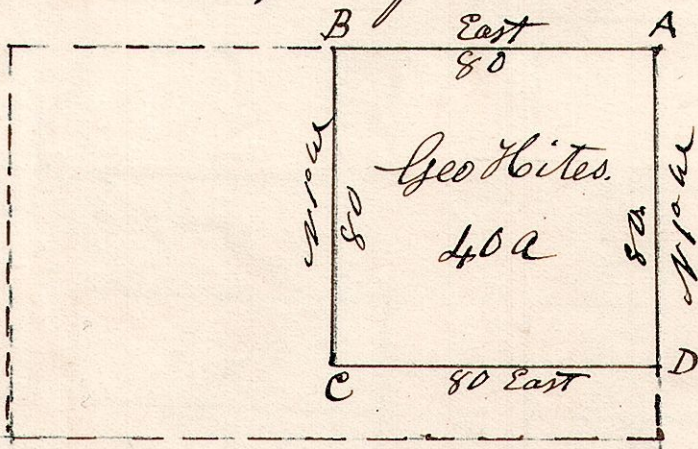 B East A
80
N 1° W
80
Geo Hites.
40 a
80
N 1° W
C 80 East D